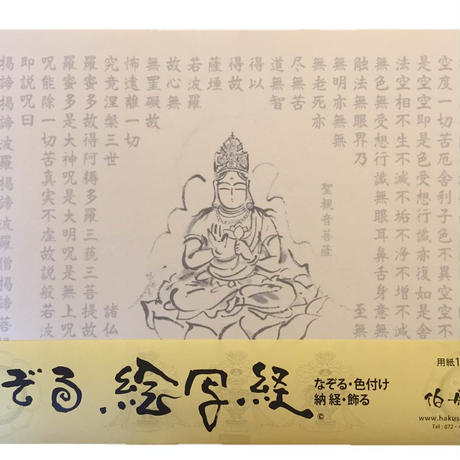 空度一切苦厄舎利子色不異空空不
是空空即是色受想行識亦復如是舎
法空相不生不滅不垢不浄不増不減
無色無受想行識無眼耳鼻舌身意無
触法無眼界乃 至無
無明亦無無
無老死亦
尽無苦
道無智
得以
得故
薩埵
若波羅
故心無
無罣礙故
怖遠離一切
究竟涅槃三世 諸仏
羅蜜多故得阿耨多羅三藐三菩提故
羅蜜多是大神呪是大明呪是無上呪
呪能除一切苦真実不虚故説般若波
即説呪曰
掲諦掲諦波羅掲諦波羅僧掲諦菩提
聖観音菩薩
ぞる 絵写経
©
なぞる・色付け
納経・飾る
用紙1
www.hakus
Tel : 072 -